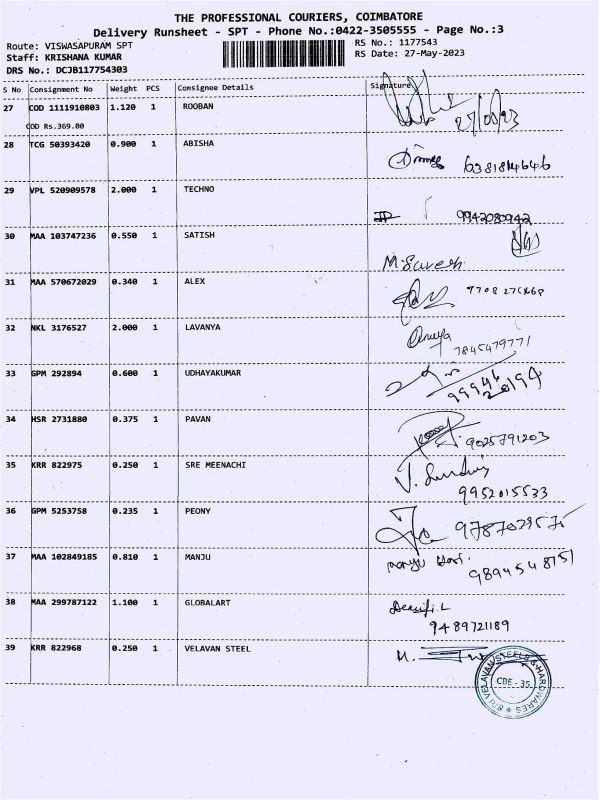 THE PROFESSIONAL COURIERS, COIMBATORE
Delivery Runsheet - SPT - Phone No.:0422-3505555 - Page No.:3
Route: VISWASAPURAM SPT
RS No.: 1177543
Staff: KRISHANA KUMAR
RS Date: 27-May-2023
DRS No.: DCJB117754303
S No Consignment No Weight PCS Consignee Details Signature
27 COD 1111910803 1.120 1 ROOBAN
COD Rs.369.00
28 TCG 50393420 0.900 1 ABISHA
29 VPL 520909578 2.000 1 TECHNO
9942080942
30 MAA 103747236 0.550 1 SATISH
M.Suresh
31 MAA 570672029 0.340 1 ALEX
32 NKL 3176527 2.000 1 LAVANYA
7845479771
33 GPM 292894 0.600 1 UDHAYAKUMAR
34 HSR 2731880 0.375 1 PAVAN
9025791203
35 KRR 822975 0.250 1 SRE MEENACHI
9952015533
36 GPM 5253758 0.235 1 PEONY
37 MAA 102849185 0.810 1 MANJU
9894548151
38 MAA 299787122 1.100 1 GLOBALART
9489721189
39 KRR 822968 0.250 1 VELAVAN STEEL
SRI VELAVAN STEELS & HARDWARES
CBE - 35